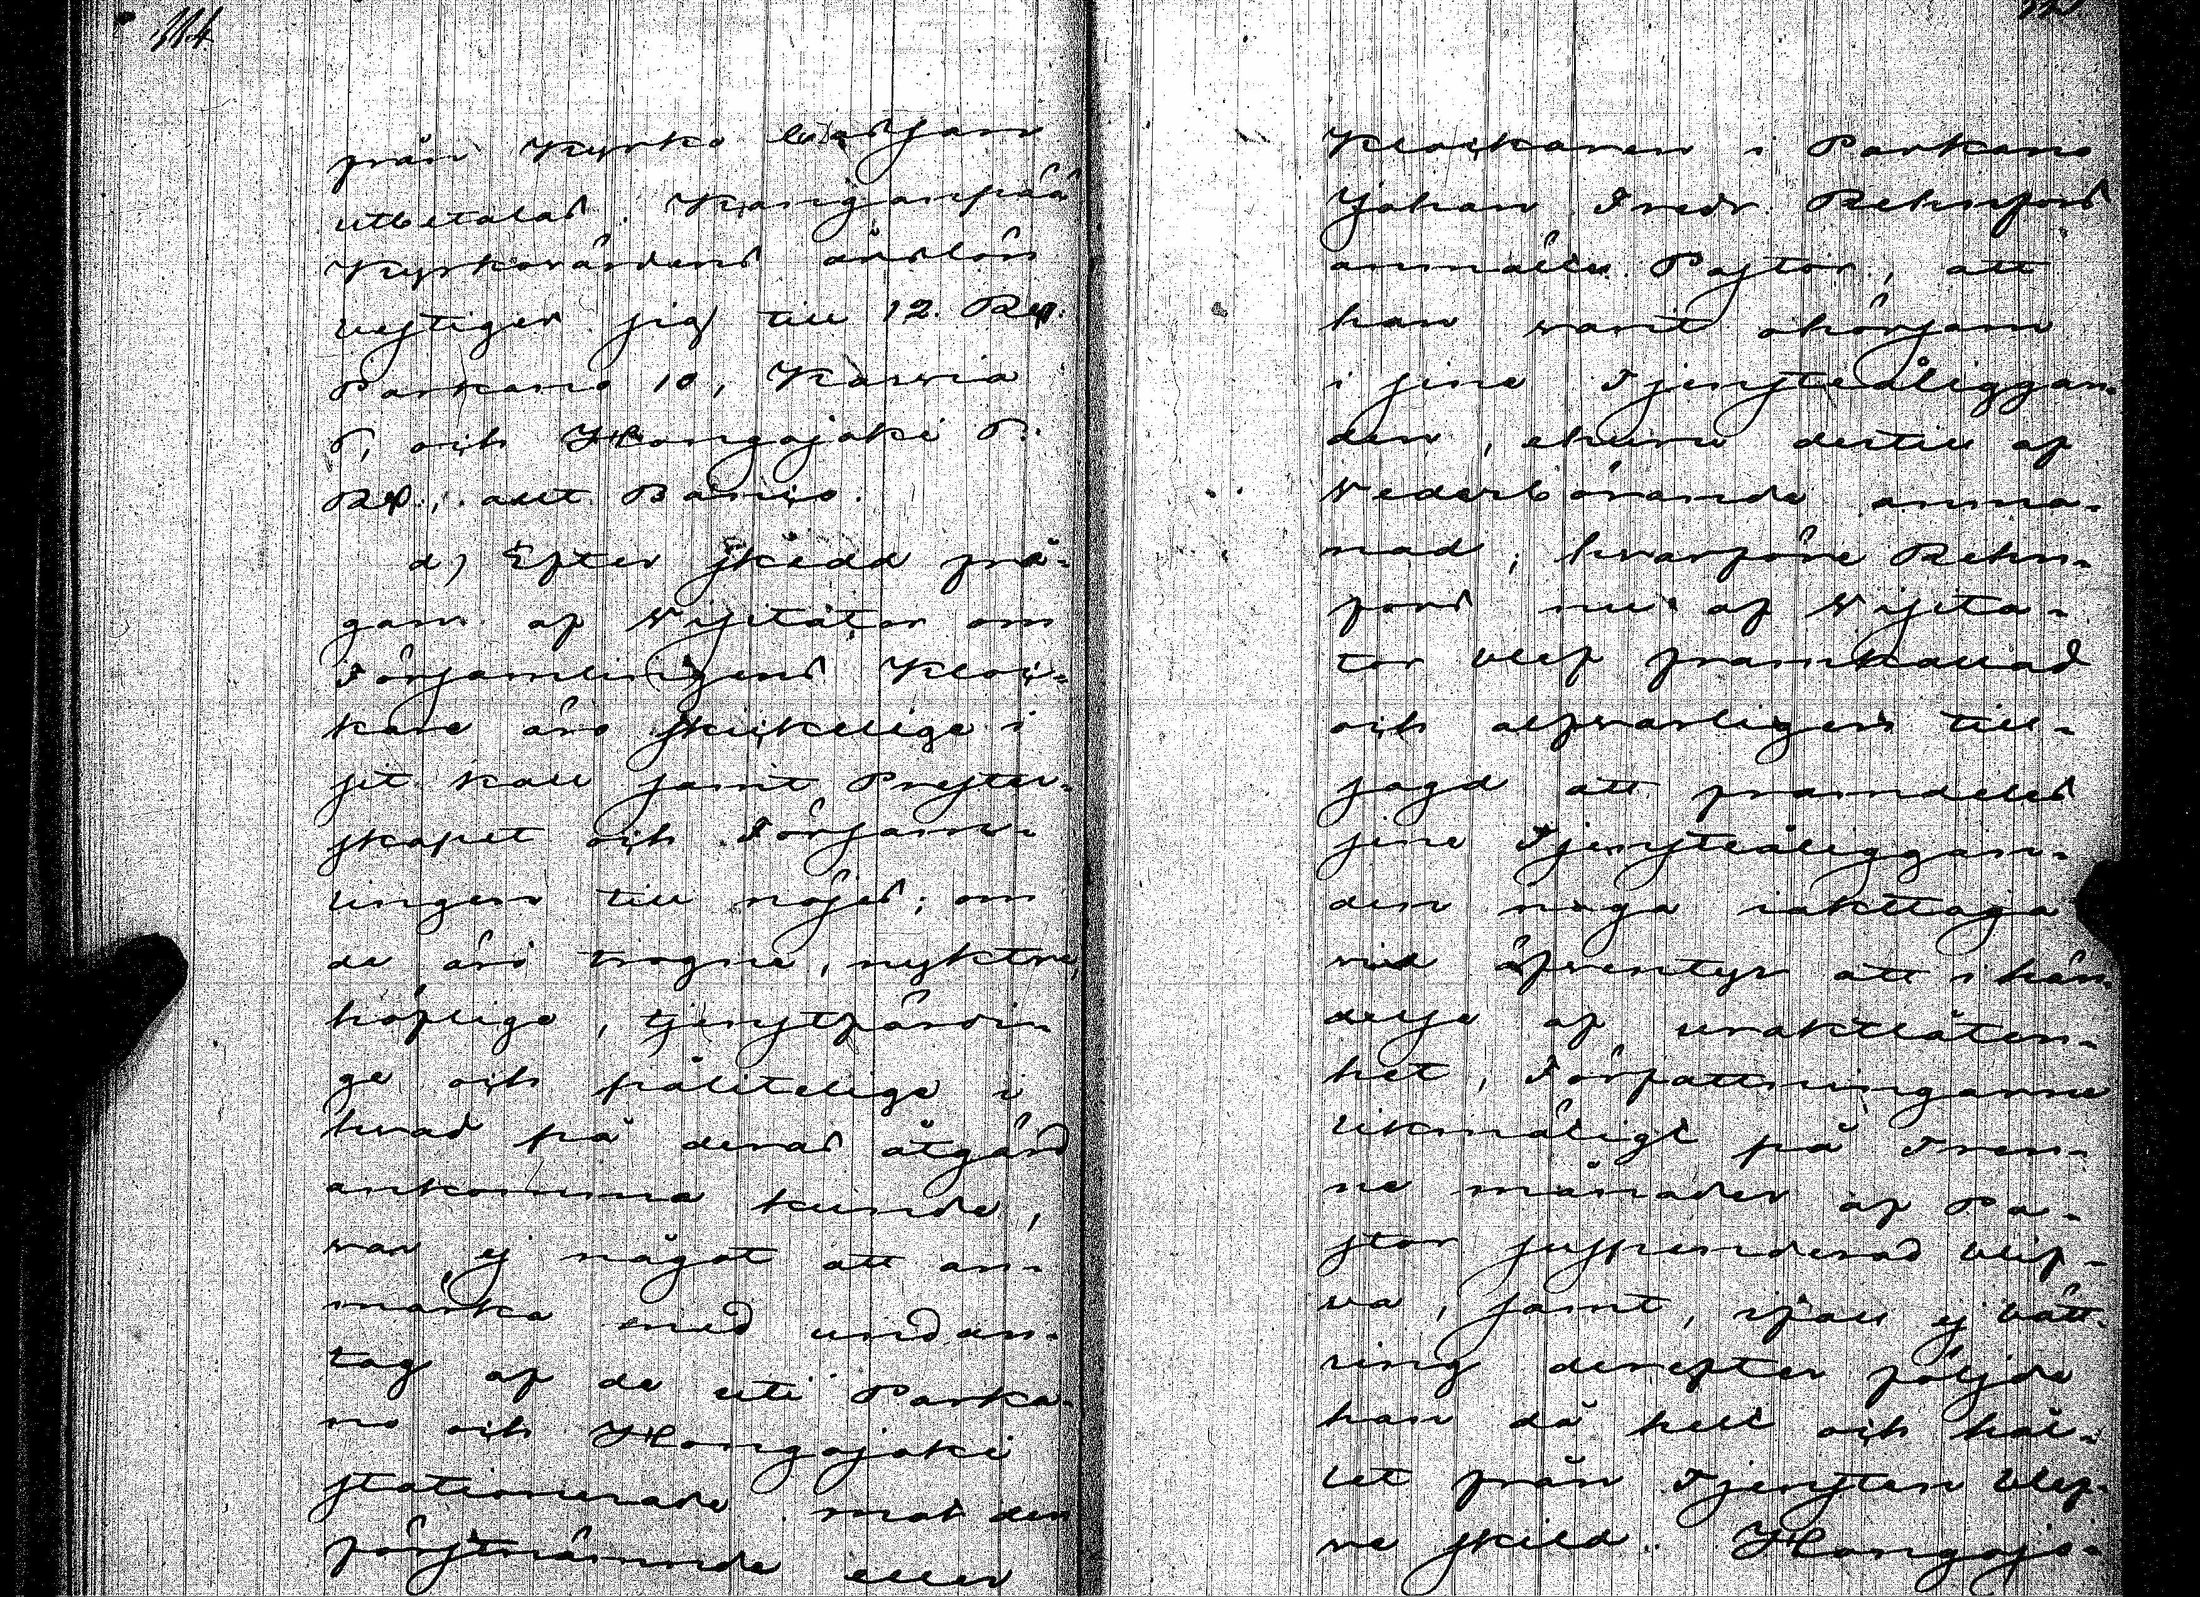 114
från Kyrko Cassan
utbetalas. Kangasspää
Kyrkovärdens årslön
bestiger sig till 12. Rbl.
Parkano 10, Karvia
8, och Hongojoki 8.
Rbl., allt Banco.
d) Efter skedd frå-
gan af Visitator om
Församlingens Kloc-
kare äro skickelige i
sit kall samt Prester-
skapet och Försam-
lingen till nöjes; om
de äro trogne, nyktre,
höflige, tjenstfärdi-
ge och pålitelige i
hvad på deras åtgärd
ankomma kunde,
var ej något att an-
märka med undan-
tag af de uti Parka-
no och Hongojoki
stationerade mot den
förstnämnde eller
Klockaren i Parkano
Johan Fredr. Rehnfors
anmälte Pastor, att
han varit ohörsam
i sine Tjensteåliggan-
den, ehuru dertill af
Vederbörande anma-
nad; hvarföre Rehn-
fors nu af Visita-
tor blef framkallad
och alfvarligen till-
sagd att framdeles
sine Tjensteåliggan-
den noga iakttaga
vid äfventyr att i hän-
delse af uraktlåten-
het, Författningarne
likmätigt på Tren-
ne månader af Pa-
stor suspenderad blif-
va, samt, ifall ej bätt-
ring derefter följde
han då helt och hål-
let från Tjensten blef-
ve skild. Hongojo-